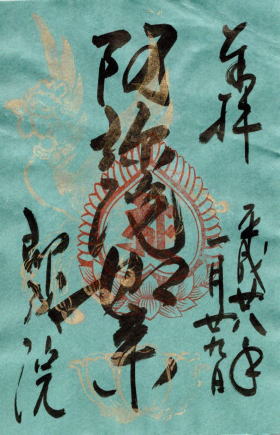 奉拝
平成廿八年
一月廿九日
阿弥陀如来
院